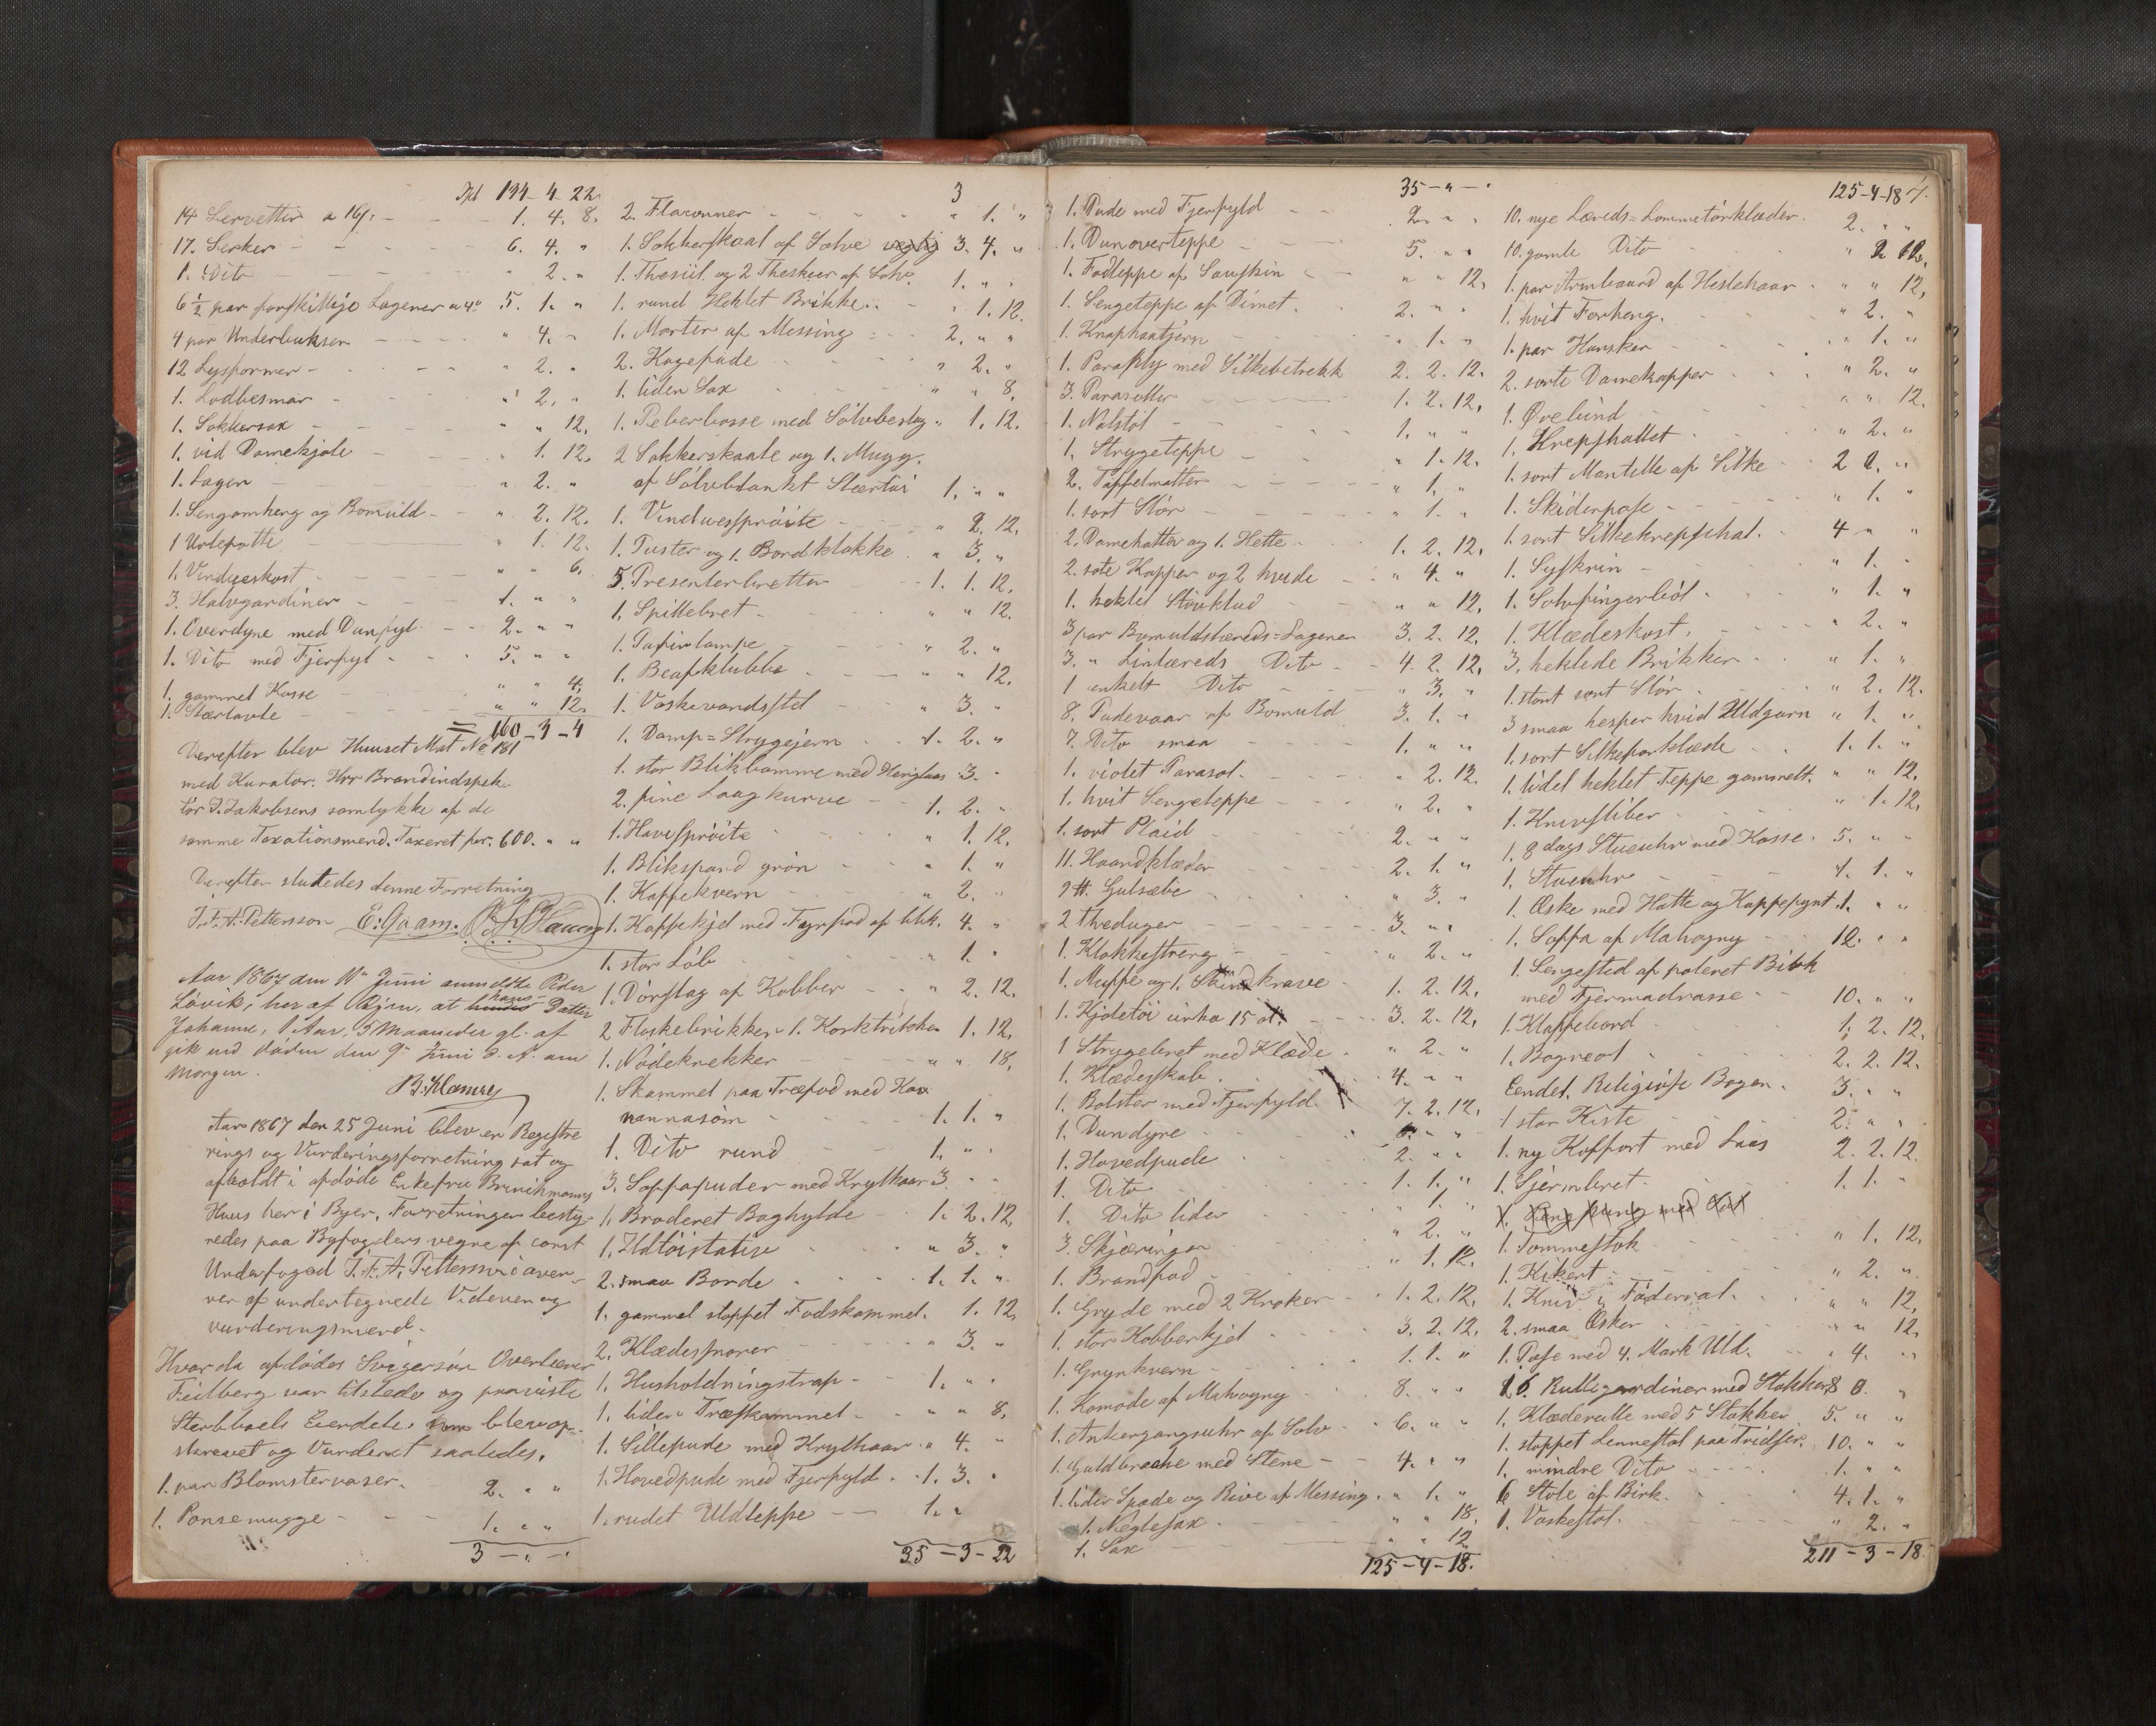 Spd 144 - 4 22
14 Servetter a 16 s. - 1. 4. 8.
17. Serker - 6. 4. "
1. Dito - " 2. "
6 1/2 par forskillige Lagener a 4 " 5. 1. "
4 par Underbukser - " 4. "
12 Lysformer - " 2. "
1. Lodbesmar - " 2. "
1. Sokkersax - " " 12.
1. vid Damekjole - " 1. 12.
1. Lagen - " 2. "
1. Sengomheng og Bomuld - " 2. 12.
1 Urtepotte - " 1. 12.
1. Vindueskost - " " 6.
3. Halvgardiner - 1. " "
1. Overdyne med Dunfyl - 2. " "
1. Dito med Fjerfyl - 5. " "
1. gammel Kasse - " " 4.
1. Stærtavle - " " 12.
= 160 - 3 - 4
Derefter blev Huuset Mat No 181
med Kurator. Hrr Brandindspek-
tör P. Jakobsens samtykke af de
samme Taxationsmend. Taxeret for. 600. " "
Derefter sluttedes denne Forretning
J. F. A. Pettersson E. Gaam.
Aar 1867 den 11te Juni anmeldte Peder
Lövik, her af Byen, at hans Datter
Johanne, 1 Aar, 5 Maaneder gl. af
gik ved döden den 9de Juni d. A. om
Morgen.
B. Klamer
Aar 1867 den 25 Juni blev en Regestre
rings og Vurderingsforretning sat og
afholdt i afdöde Enkefru Brinchmanns
Huus her i Byen, Forretningen besty-
redes paa Byfogdens vegne af const
Underfoged J. F. A. Pettersson i over-
ver af undertegnede Videver og
vurderingsmend.
Hvor da afdödes Svigersön Overlærer
Feilberg var tilstede og paaviste
Sterbboets Eiendele, som blev op-
skrevet og Vurderet saaledes.
1. par Blomstervaser. - 2. " "
1. Ponsemugge - 1. " "
3 - " - "
3
2. Flaconner - " 1. "
1. Sokkerskaal af Sølve vegtig 3. 4. "
1. Thesiil og 2 Theskeer af Sølv. 1. " "
1. rund Heklet Brikke. " 1. 12.
1. Morter af Messing - 2. " "
2. Kagefade - " 2. "
1. liden Sax - " " 8.
1. Peberbosse med Sölvbeslag " 1. 12.
2 Sokkerskaale og 1. Mugg.
af Sölvblankt Steertöi 1. " "
1. Vinduesspröite - " 2. 12.
1. Puster og 1. Bordklokke. " 3. "
5. Presenterbretter - 1. 1. 12.
1. Spillebret - " " 12.
1. Tafinlampe - " 2. "
1. Beafklubbe - " " 12.
1. Vaskevandsstel - " 3. "
1. Damp-Strygejern - 1. 2. "
1. stor Blikbomme med Hengelaas 3. "
2. fine Laagkurve - 1. 2. "
1. Havesprôite - " 1. 12.
1. Blikspand grön - " 1. "
1. Kaffekvern - " 2. "
1. Kaffekjel med Fyrfad af blik. 4. "
1. stor Löb - " 1. "
1. Dörslag af Kobber - " 2. 12.
2 Flaskebrikker 1. Korktrikker 1. 12.
1. Nödeknekker - " " 18.
1. Skammel paa Træfod med Kan
nannasöm - 1. 1. "
1. Dito rund - 1. " "
3. Soffapuder med Krylhaar 3. " "
1. Broderet Baghylde - 1. 2. 12
1. Ildtöistative - " 3. "
2. smaa Borde - 1. 1. "
1. gammel stoppet Fodskammel. 1. 12.
2. Klædessnorer - " 3. "
1. Husholdningstrap - 1. " "
1. liden Træskammel - " " 8.
1. Sillepude med Krylhaar " 4. "
1. Hovedpude med Fjerfyld - 1. 3. "
1. rudet Uldteppe - 1. "
35 - 3 - 22
35 - " - "
1. Pude med Fjerfyld - 2. " "
1. Dunoverteppe - 5. " "
1. Fodteppe af Saueskin - " " 12.
1. Sengeteppe af Dimet. 2. " "
1. Knaphaatjern - " 1. "
1. Paraply med Silkebetrekk 2. 2. 12.
3. Parasoller - 1. 2. 12.
1. Nalstol - 1. " "
1. Strygeteppe - " 1. 12.
2. Taffelmatter - " 1. "
1. sort Slör - " 1. "
2. Damehatter og 1. Hette - 1. 2. 12.
2. sote Kapper og 2 hvide - " 4. "
1. heklet Stövklud - " " 12.
3 par Bomuldslæreds-Lagener 3. 2. 12.
3. " Linlæreds Dito - 4. 2. 12.
1 enkelt Dito - " 3. "
8. Pudevaar af Bomuld 3. 1. "
7. Dito smaa - 1. " "
1. violet Parasol. " 2. 12.
1. hvit Sengeteppe - " 2. "
1. sort Plaid - 2. " "
11. Haandklæder - 2. 1. "
2 ℔. Gulsæbe - " 3. "
2 theduger - 3. " "
1. Klokkestreng - " 2. "
1. Muffe og 1. Skindkrave 1. 2. 12.
1. Kjoletöi cirka 15 al. 3. 2. 12.
1 Strygebret med Klæde. " 2. "
1. Klædesskab. 4. " "
1. Bolster med Fjerfyld 7. 2. 12.
1. Dundyne - 6. " "
1. Hovedpude - 2. " "
1. Dito - 1. 1. "
1. Dito liden - 1. "
3. Skjæringer - " 2. "
1. Brandfad - " 1. 12.
1. Gryde med 2 Kroker - 1. 2. 12.
1. stor Kobberkjel - 3. 2. 12.
1. Grynkvern - 1. 1. "
1. Komode af Mahogny - 8. " "
1. Ankergangsuhr af Solv - 6. " "
1. Guldbroche med Stene - 4. " "
1. liden Spade og Rive af Messing. " 1. "
1. Neglesax. - " " 18.
1. Sax - " " 12
125 - 4 - 18.
125 - 4 - 18 7.
10. nye Læreds-Lommetörklæder. 2. " "
10. gamle Dito " 2 12.
1. par Armbaand af Hestehaar. " " 12.
1. hvit Forheng. " 2. "
1. par Hansker " 1. "
2. sorte Damekapper " 2. "
1. Örebind " " 12.
1. Krepshallet " 2. "
1. sort Mantille af Silke 2 2. "
1. Skiderpose - " 1. "
1. sort Silkekrepschal. 4 " "
1. Syskrin - " 1. "
1. Solvfingerböl. " 1. "
1. Klædeskost. - " 2. "
3. heklede Brikker " 1. "
1. stort sort Slör " 2. 12.
3 smaa hesper hvid Uldgarn " 1. "
1. sort Silkeforklæde 1. 1. "
1. lidet heklet Teppe gammelt. " " 12.
1. Knivsliber - " 1. 12.
1. 8 dags Stueuhr med Kasse. 5. " "
1. Stueuhr - 1. 1. "
1. Æske med Hatte og Kappepynt 1. " "
1. Soffa af Mahogny 12. " "
1. Sengested af poleret Birk
med Fjermadrasse 10. " "
1. Klaffebord 1. 2. 12.
1. Bogreol 2. 2. 12.
Eendel. Religiöse Bøger. 3. " "
1 stor Kiste 2. " "
1. ny Koffort med Laas 2. 2. 12.
1. Sjermbret. 1. 1. "
1. Tommestok - " 1. 12.
1. Kikert - " 2. "
1. Kniv i Foderral. " " 12.
2. smaa Æsker " " 12.
1. Pose med 4. Mark Uld. " 4. "
16. Rullegardiner med Stokker 8 0. "
1. Klæderulle med 5 Stokker 5. " "
1. stoppet Lennestol paa Tridser. 10. " "
1. mindre Dito 1. " "
6 Stole af Birk. 4. 1. "
1. Vaskestol. " 2. "
211 - 3 - 18.